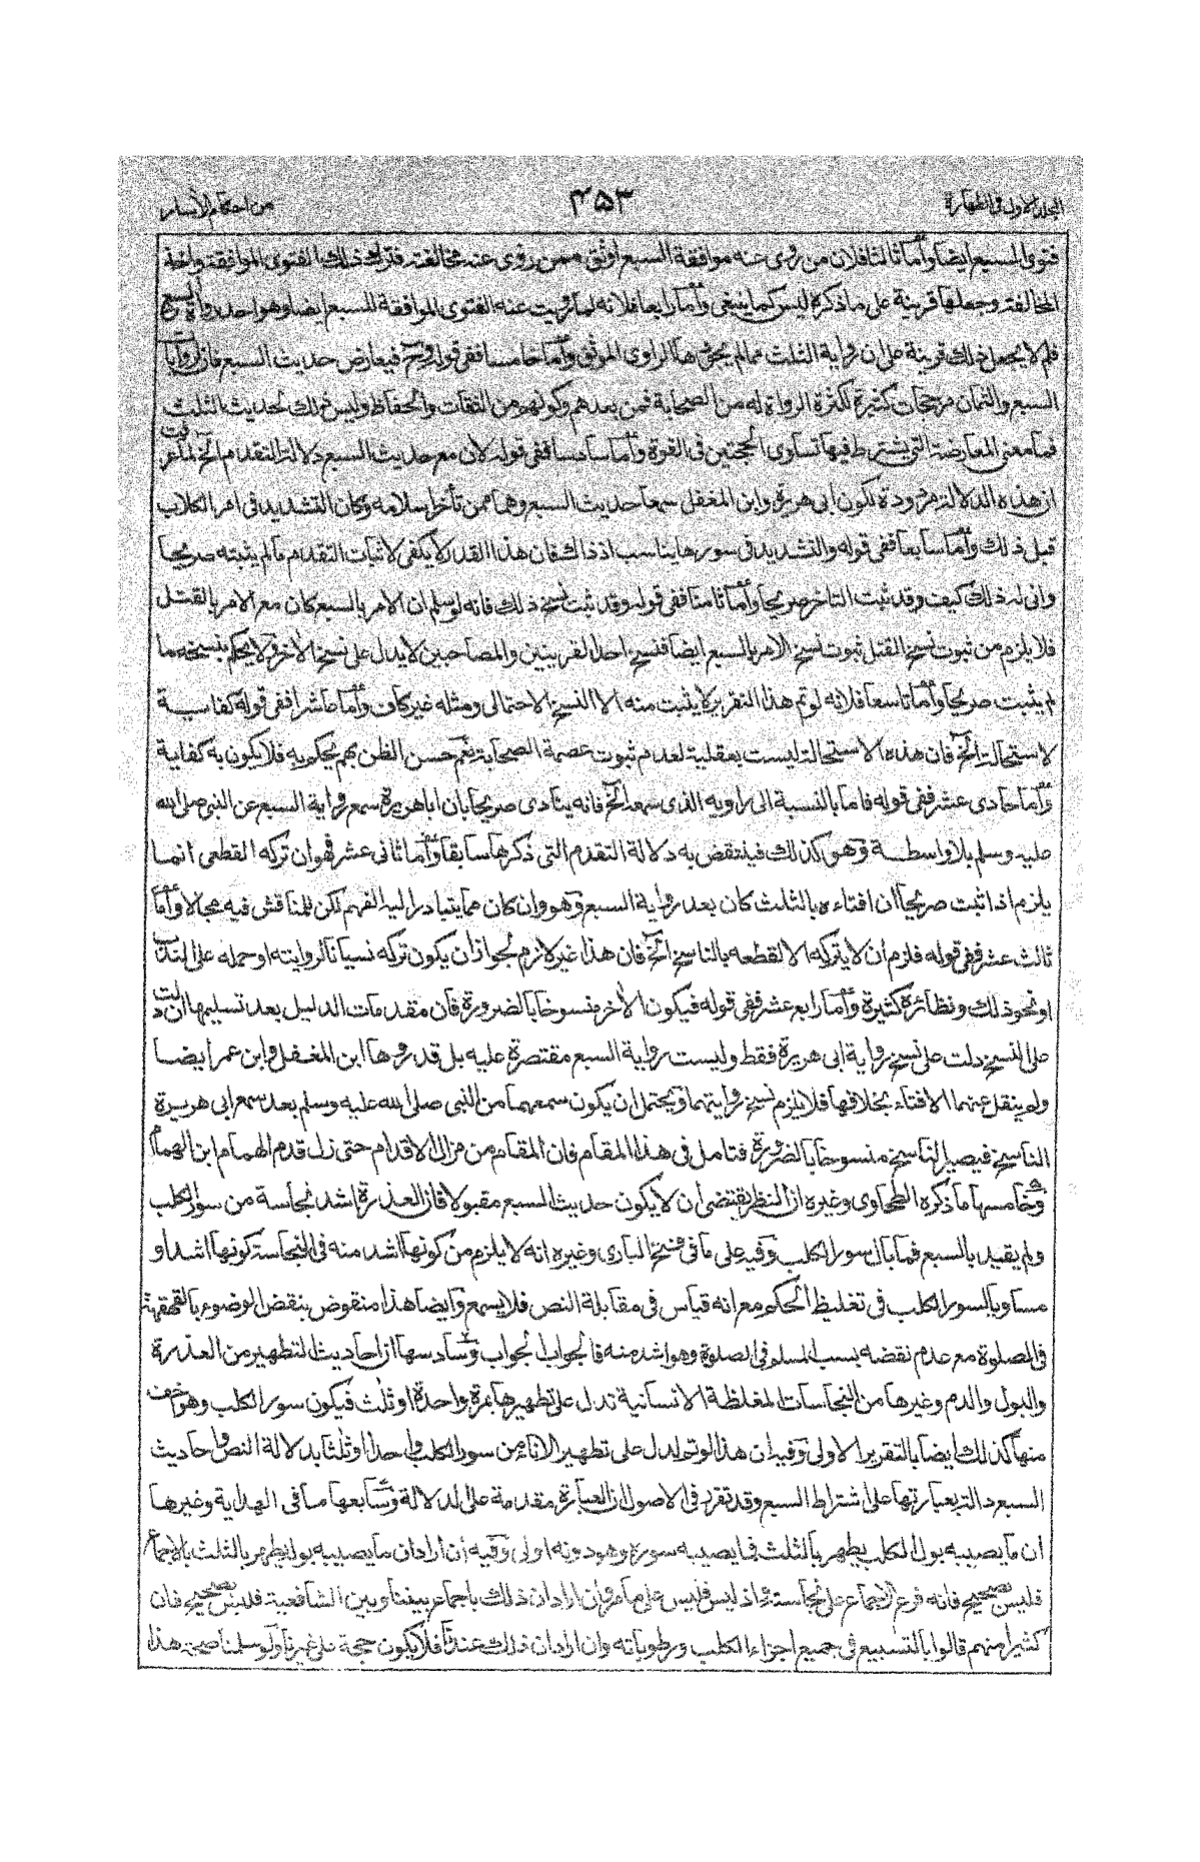 المجلد الاول فى الطهارة
٤٥٣
من احكام الأسار
فتوى السبع ايضا وأما ثالثا فلان من روى عنه موافقة السبع اوثق ممن روى عنه مخالفته فترك ذلك الفتوى الموافقة واخذ
المخالفة وجعلها قرينة على ما ذكره ليس كما ينبغى وأما رابعا فلانه لما رويت عنه الفتوى الموافقة للسبع ايضا وهو احد رواة السبع
فلم لا يجعل ذلك قرينة على ان رواية الثلث مما لم يجئ بها الراوى الموثق وأما خامسا ففى قوله وح فيعارض حديث السبع فان لروايات
السبع والثمان مرجحات كثيرة لكثرة الرواة له من الصحابة فمن بعدهم وكونهم من الثقات والحفاظ وليس ذلك لحديث الثلث
فما معنى المعارضة التى يشترط فيها تساوى الحجتين فى القوة وأما سادسا ففى قوله لان مع حديث السبع دلالة التقدم الخ لما عرفت
ان هذه الدلالة مردودة لكون ابى هريرة وابن المغفل سمعا حديث السبع وهما ممن تأخر اسلامه وكان التشديد فى امر الكلاب
قبل ذلك وأما سابعا ففى قوله والتشديد فى سورها يناسب اذ ذاك فان هذا القدر لا يكفى لاثبات التقدم ما لم يثبته صريحا
وانى له ذلك كيف وقد ثبت التاخر صريحا وأما ثامنا ففى قوله وقد ثبت نسخ ذلك فانه لو سلم ان الامر بالسبع كان مع الامر بالقتل
فلا يلزم من ثبوت نسخ القتل ثبوت نسخ الامر بالسبع ايضا فنسخ احد القرينين والمصاحبين لا يدل على نسخ الأخر ولا يحكم بنسخه ما
لم يثبت صريحا وأما تاسعا فلانه لو تم هذا التقرير لا يثبت منه الا النسخ الاحتمالى ومثله غير كاف وأما عاشرا ففى قوله كفاية
لاستحالة الخ فان هذه الاستحالة ليست بعقلية لعدم ثبوت عصمة الصحابة نعم حسن الظن بهم يحكم به فلا يكون به كفاية
وأما حادى عشر ففى قوله فاما بالنسبة الى راويه الذى سمعه الخ فانه ينادى صريحا بان ابا هريرة سمع رواية السبع عن النبى صلى الله
عليه وسلم بلا واسطة وهو كذلك فينتقض به دلالة التقدم التى ذكرها سابقا وأما ثانى عشر فهو ان تركه القطعى انما
يلزم اذا ثبت صريحا ان افتاءه بالثلث كان بعد رواية السبع وهو وان كان مما يتبادر اليه الفهم لكن للمناقش فيه مجالا وأما
ثالث عشر ففى قوله فلزم ان لا يتركه الا لقطعه بالناسخ الخ فان هذا غير لازم لجواز ان يكون تركه نسيانا لروايته او حمله على الندب
او نحو ذلك ونظائره كثيرة وأما رابع عشر ففى قوله فيكون الأخر منسوخا بالضرورة فان مقدمات الدليل بعد تسليمها ان دلت
على النسخ دلت على نسخ رواية ابى هريرة فقط وليست رواية السبع مقتصرة عليه بل قد رواها ابن المغفل وابن عمر ايضا
ولم ينقل عنهما الافتاء بخلافها فلا يلزم نسخ روايتهما ويحتمل ان يكون سمعهما من النبى صلى الله عليه وسلم بعد سمع ابى هريرة
الناسخ فيصير الناسخ منسوخا بالضرورة فتامل فى هذا المقام فان المقام من مزال الاقدام حتى زل قدم الهمام ابن الهمام
وخامسها ما ذكره الطحاوى وغيره ان النظر يقتضى أن لا يكون حديث السبع مقبولا فان العذرة اشد نجاسة من سور الكلب
ولم يقيد بالسبع فما بال سور الكلب وفيه على ما فى فتح البارى وغيره انه لا يلزم من كونها اشد منه فى النجاسة كونها اشد او
مساويا لسور الكلب فى تغليظ الحكم مع انه قياس فى مقابلة النص فلا يسمع وأيضا هذا منقوض بنقض الوضوء بالقهقهة
فى الصلوة مع عدم نقضه بسب المسلم فى الصلوة وهو اشد منه فالجواب الجواب وسادسها ان احاديث التطهير من العذرة
والبول والدم وغيرها من النجاسات المغلظة الانسانية تدل على تطهيرها بمرة واحدة او ثلث فيكون سور الكلب وهو اخف
منها كذلك ايضا بالتقرير الاولى وفيه ان هذا لو تم لدل على تطهير الاناء من سور الكلب واحدا او ثلثا بدلالة النص واحاديث
السبع دالة بعبارتها على اشتراط السبع وقد تقرر فى الاصول ان العبارة مقدمة على الدلالة وسابعها ما فى الهداية وغيرها
ان ما يصيبه بول الكلب يطهر بالثلث فما يصيبه سوره وهو دونه اولى وفيه أن اراد ان ما يصيبه بوله يطهر بالثلث بالاجماع
فليس بصحيح فانه فرع الاجماع على نجاسته واذ ليس فليس على ما مر وان اراد ان ذلك باجماع بيننا وبين الشافعية فليس بصحيح فان
كثيرا منهم قالوا بالتسبيع فى جميع اجزاء الكلب ورطوباته وان اراد ان ذلك عندنا فلا يكون حجة على غيرنا ولو سلمنا صحة هذا